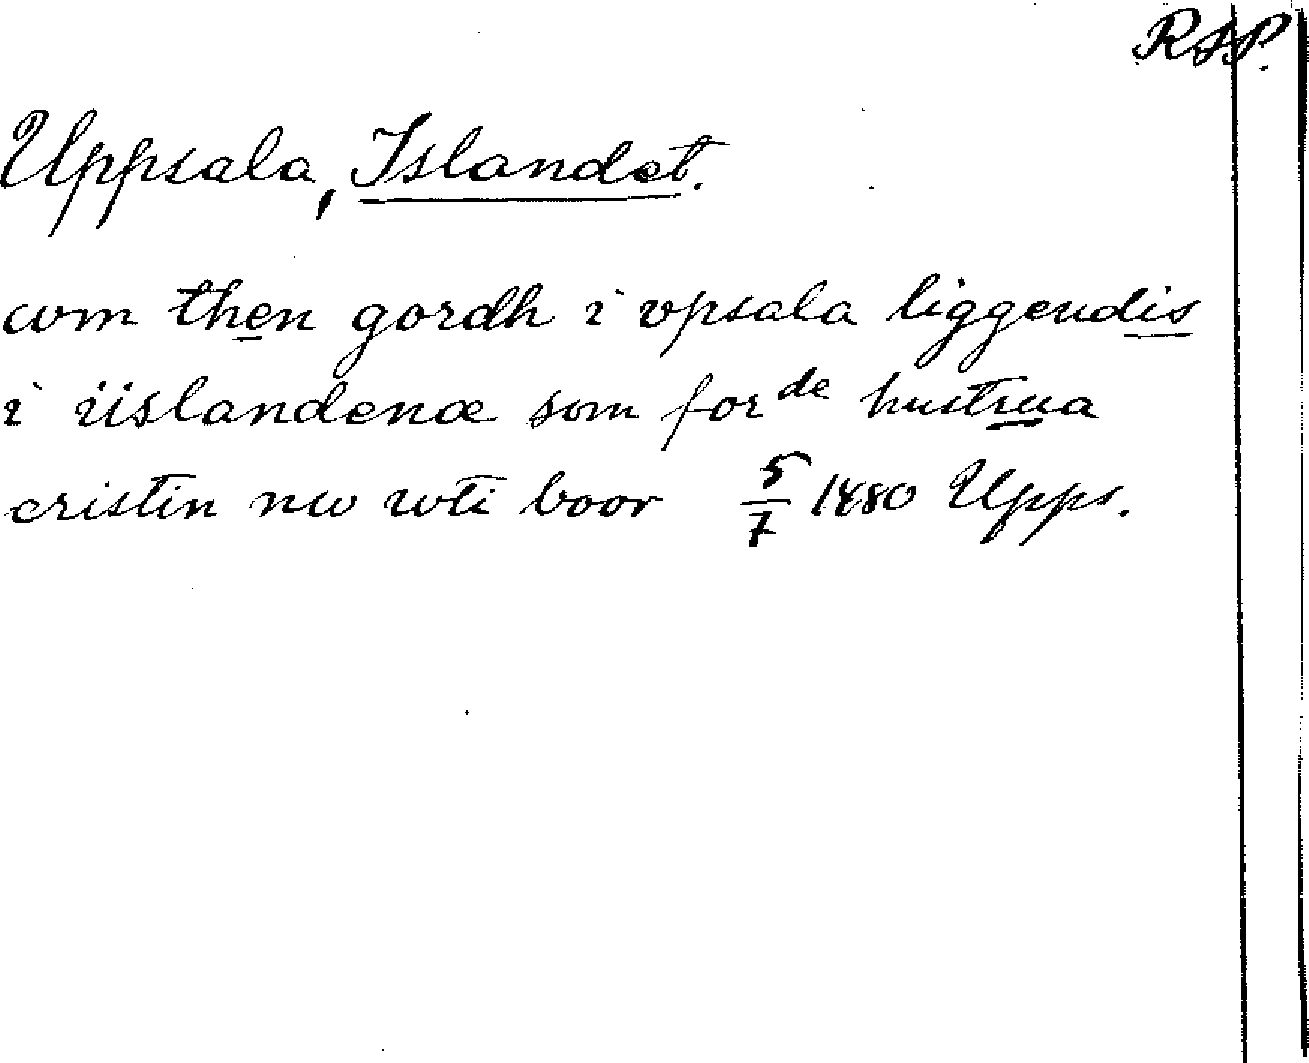 RAP.
Uppsala, Islandet.
wm then gordh i vpsala liggendis
i iislandenæ som for de hustrua
cristin nw wti boor 5/7 1480 Upps.